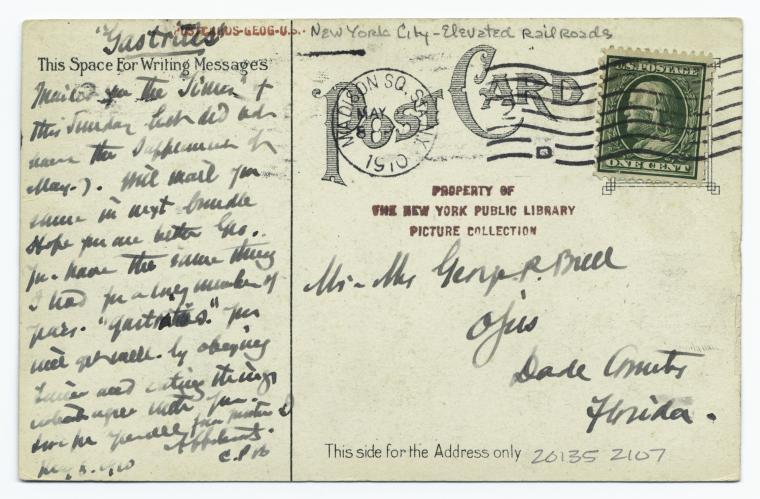 "Gastritis"
POSTCARDS-GEOG-U.S.
NEW YORK City-Elevated Railroads
This Space For Writing Messages
POST CARD
MADISON SQ. STA. N.Y.
MAY
8
1910
2
U.S. POSTAGE
ONE CENT
PROPERTY OF
THE NEW YORK PUBLIC LIBRARY
PICTURE COLLECTION
Mailed you the Times of
this Sunday but did not
have the Supplement of
May-7. Will mail you
same in next bundle
Hope you are better Geo.
You have the same thing
I had for a long number of
years. "gastritis." you
will get well by obeying
and eating things
which agree with you.
May 8. 1910
Mr-Mrs George R. Bell
Ojus
Dade County
Florida.
This side for the Address only
20135 2107